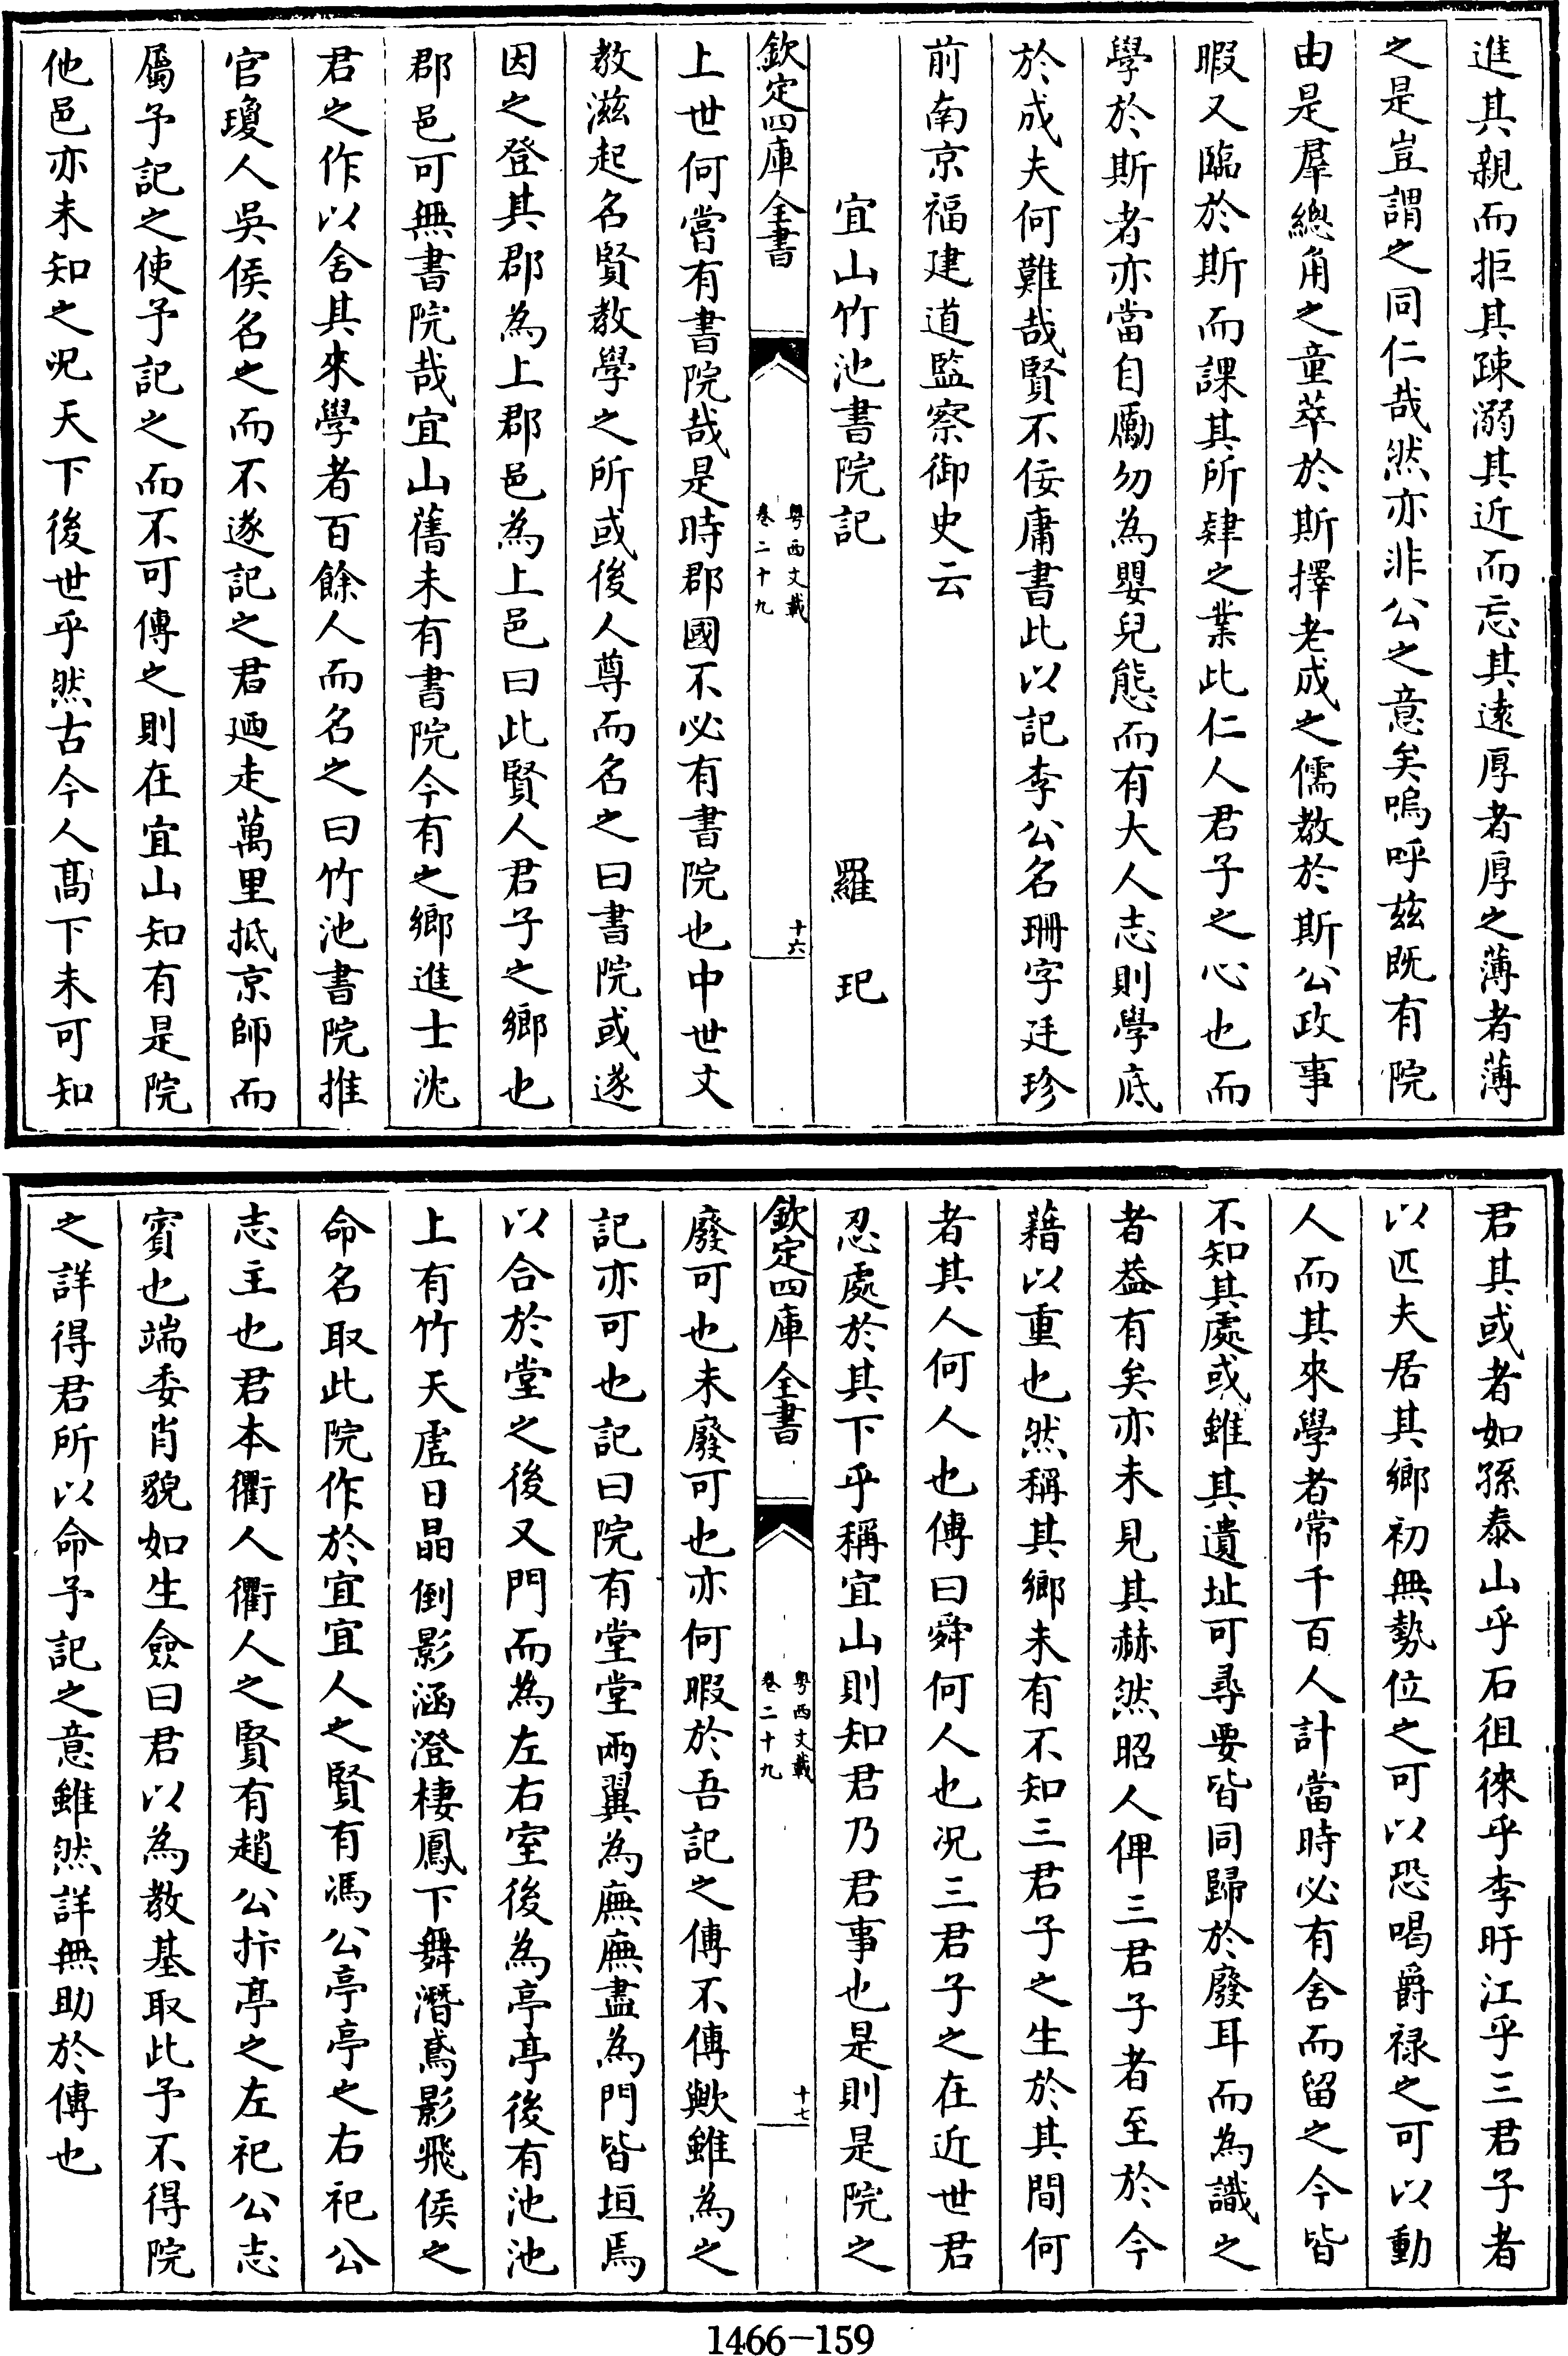 進其親而拒其疎溺其近而忘其遠厚者厚之薄者薄
之是豈謂之同仁哉然亦非公之意矣嗚呼兹既有院
由是羣總角之童萃於斯擇老成之儒教於斯公政事
暇又臨於斯而課其所肄之業此仁人君子之心也而
學於斯者亦當自勵勿為嬰兒態而有大人志則學底
於成夫何難哉賢不佞庸書此以記李公名珊字廷珍
前南京福建道監察御史云
宜山竹池書院記 羅玘
欽定四庫全書 粤西文載 卷二十九 十六
上世何嘗有書院哉是時郡國不必有書院也中世文
教滋起名賢教學之所或後人尊而名之曰書院或遂
因之登其郡為上郡邑為上邑曰此賢人君子之鄉也
郡邑可無書院哉宜山舊未有書院今有之鄉進士沈
君之作以舍其來學者百餘人而名之曰竹池書院推
官瓊人吳侯名之而不遂記之君廼走萬里抵京師而
屬予記之使予記之而不可傳之則在宜山知有是院
他邑亦未知之况天下後世乎然古今人髙下未可知
君其或者如孫泰山乎石徂徠乎李盱江乎三君子者
以匹夫居其鄉初無勢位之可以恐喝爵禄之可以動
人而其來學者常千百人計當時必有舍而留之今皆
不知其處或雖其遺址可尋要皆同歸於廢耳而為識之
者葢有矣亦未見其赫然昭人俾三君子者至於今
藉以重也然稱其鄉未有不知三君子之生於其間何
者其人何人也傳曰舜何人也况三君子之在近世君
忍處於其下乎稱宜山則知君乃君事也是則是院之
欽定四庫全書 粤西文載 卷二十九 十七
廢可也未廢可也亦何暇於吾記之傳不傳歟雖為之
記亦可也記曰院有堂堂兩翼為廡廡盡為門皆垣焉
以合於堂之後又門而為左右室後為亭亭後有池池
上有竹天虛日晶倒影涵澄棲鳳下舞潛鳶影飛侯之
命名取此院作於宜宜人之賢有馮公亭亭之右祀公
志主也君本衢人衢人之賢有趙公抃亭之左祀公志
賓也端委肖貌如生僉曰君以為教基取此予不得院
之詳得君所以命予記之意雖然詳無助於傳也
1466-159